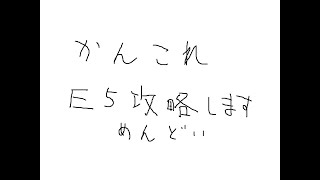 かんこれ
E5攻略します
めんどい